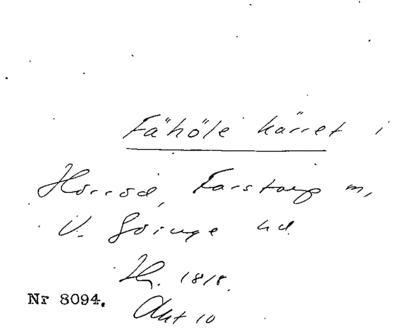 Fähöle kärret i
Horröd, Farstorp m,
V. Göinge hd.
Hg. 1818.
Nr 8094.
Akt 10